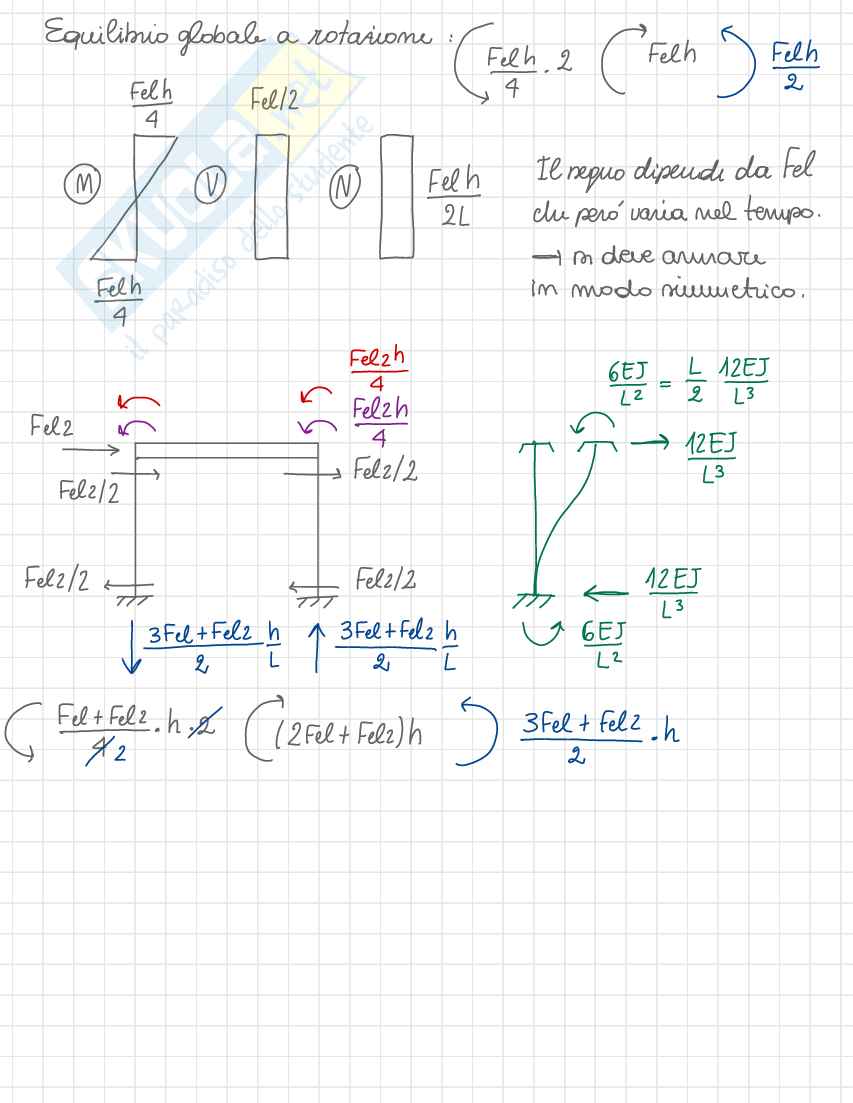 Equilibrio globale a rotazione : Felh/4 · 2 Felh Felh/2
Felh/4 Fel/2
M V N Felh/2L
Felh/4
Il segno dipende da Fel
che però varia nel tempo.
→ si deve armare
in modo simmetrico.
SKUOLA.net
il paradiso dello studente
Fel2h/4
Fel2h/4
Fel2
Fel2/2 Fel2/2
Fel2/2 Fel2/2
3Fel+Fel2/2 h/L 3Fel+Fel2/2 h/L
6EJ/L² = L/2 12EJ/L³
12EJ/L³
12EJ/L³
6EJ/L²
Fel+Fel2/4 2 · h · 2 (2Fel+Fel2)h 3Fel+Fel2/2 · h